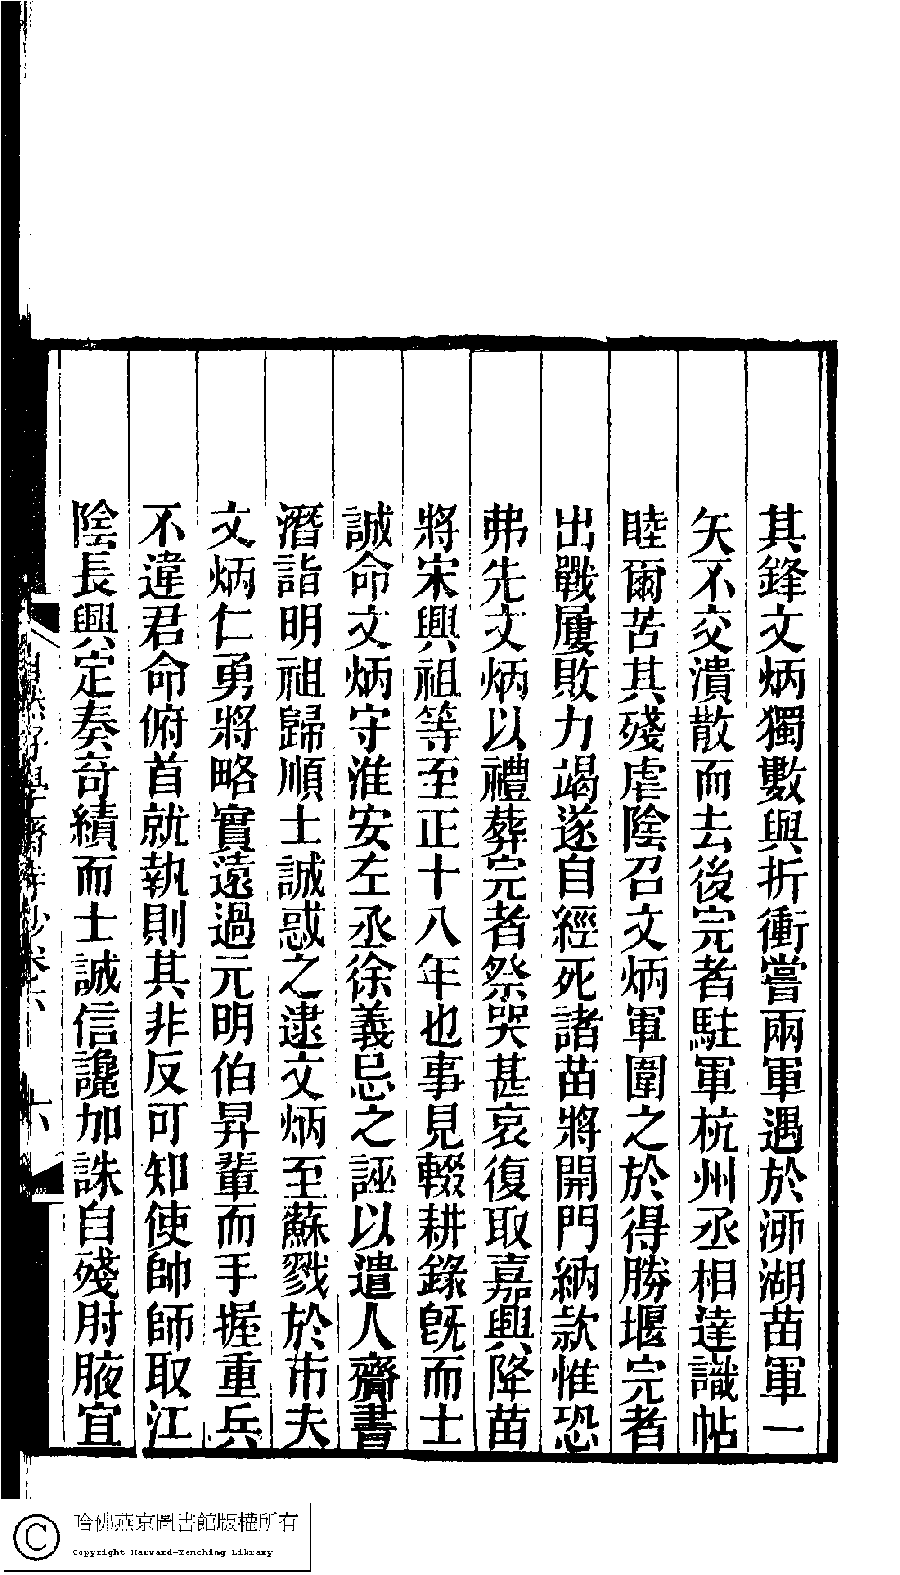 其鋒文炳獨數與折衝嘗兩軍遇於泖湖苗軍一
矢不交潰散而去後完者駐軍杭州丞相達識帖
睦爾苦其殘虐陰召文炳軍圍之於得勝堰完者
出戰屢敗力竭遂自經死諸苗將開門納款惟恐
弗先文炳以禮葬完者祭哭甚哀復取嘉興降苗
將宋興祖等至正十八年也事見輟耕錄旣而士
誠命文炳守淮安左丞徐義忌之誣以遣人齎書
潛詣明祖歸順士誠惑之逮文炳至蘇戮於市夫
文炳仁勇將略實遠過元明伯昇輩而手握重兵
不違君命俯首就執則其非反可知使帥師取江
陰長興定奏奇績而士誠信讒加誅自殘肘腋宜
自然好學齋詩鈔卷六 六
哈佛燕京圖書館版權所有
Copyright Harvard-Yenching Library